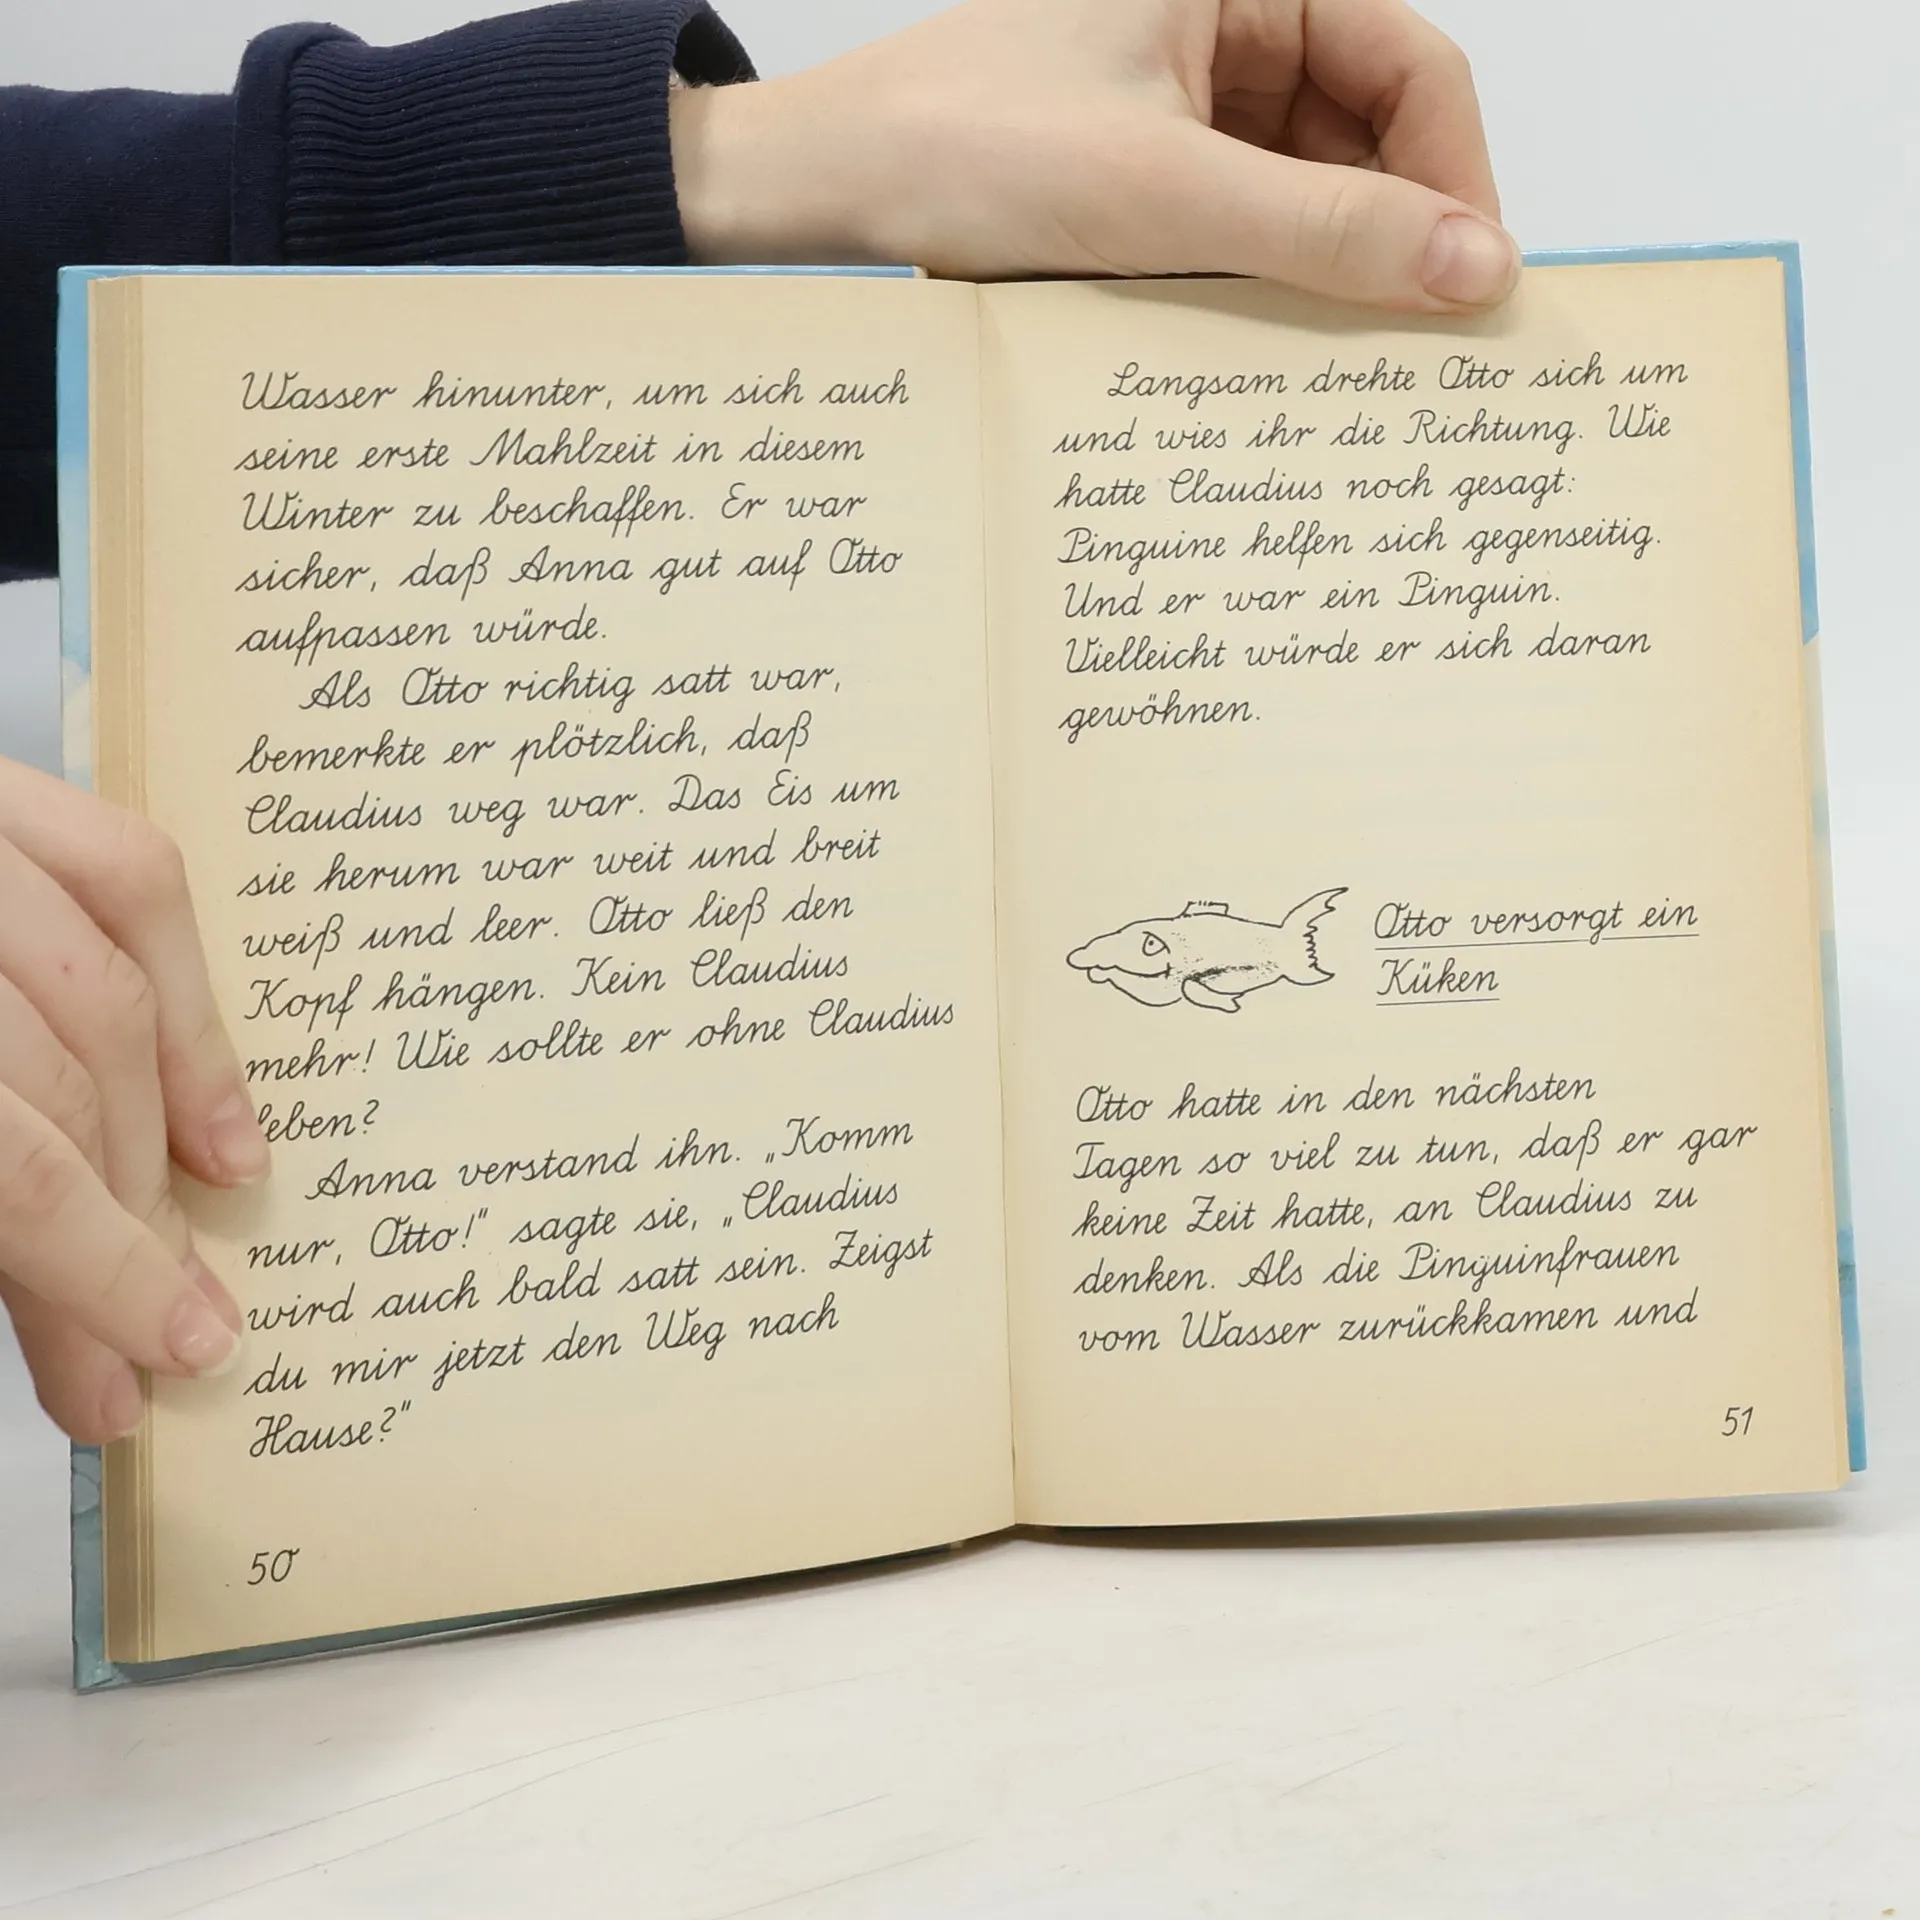 Wasser hinunter, um sich auch
seine erste Mahlzeit in diesem
Winter zu beschaffen. Er war
sicher, daß Anna gut auf Otto
aufpassen würde.
Als Otto richtig satt war,
bemerkte er plötzlich, daß
Claudius weg war. Das Eis um
sie herum war weit und breit
weiß und leer. Otto ließ den
Kopf hängen. Kein Claudius
mehr! Wie sollte er ohne Claudius
leben?
Anna verstand ihn. „Komm
nur, Otto!" sagte sie, „Claudius
wird auch bald satt sein. Zeigst
du mir jetzt den Weg nach
Hause?"
50
Langsam drehte Otto sich um
und wies ihr die Richtung. Wie
hatte Claudius noch gesagt:
Pinguine helfen sich gegenseitig.
Und er war ein Pinguin.
Vielleicht würde er sich daran
gewöhnen.
Otto versorgt ein
Küken
Otto hatte in den nächsten
Tagen so viel zu tun, daß er gar
keine Zeit hatte, an Claudius zu
denken. Als die Pinguinfrauen
vom Wasser zurückkamen und
51